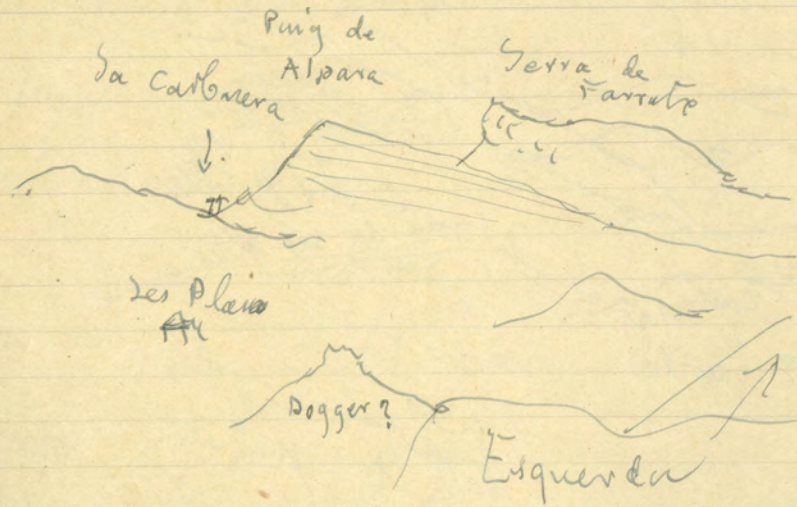 Puig de
Alpara
Sa Carbonera
Serra de
Farrutx
Ses Planes
Dogger?
Esquerda